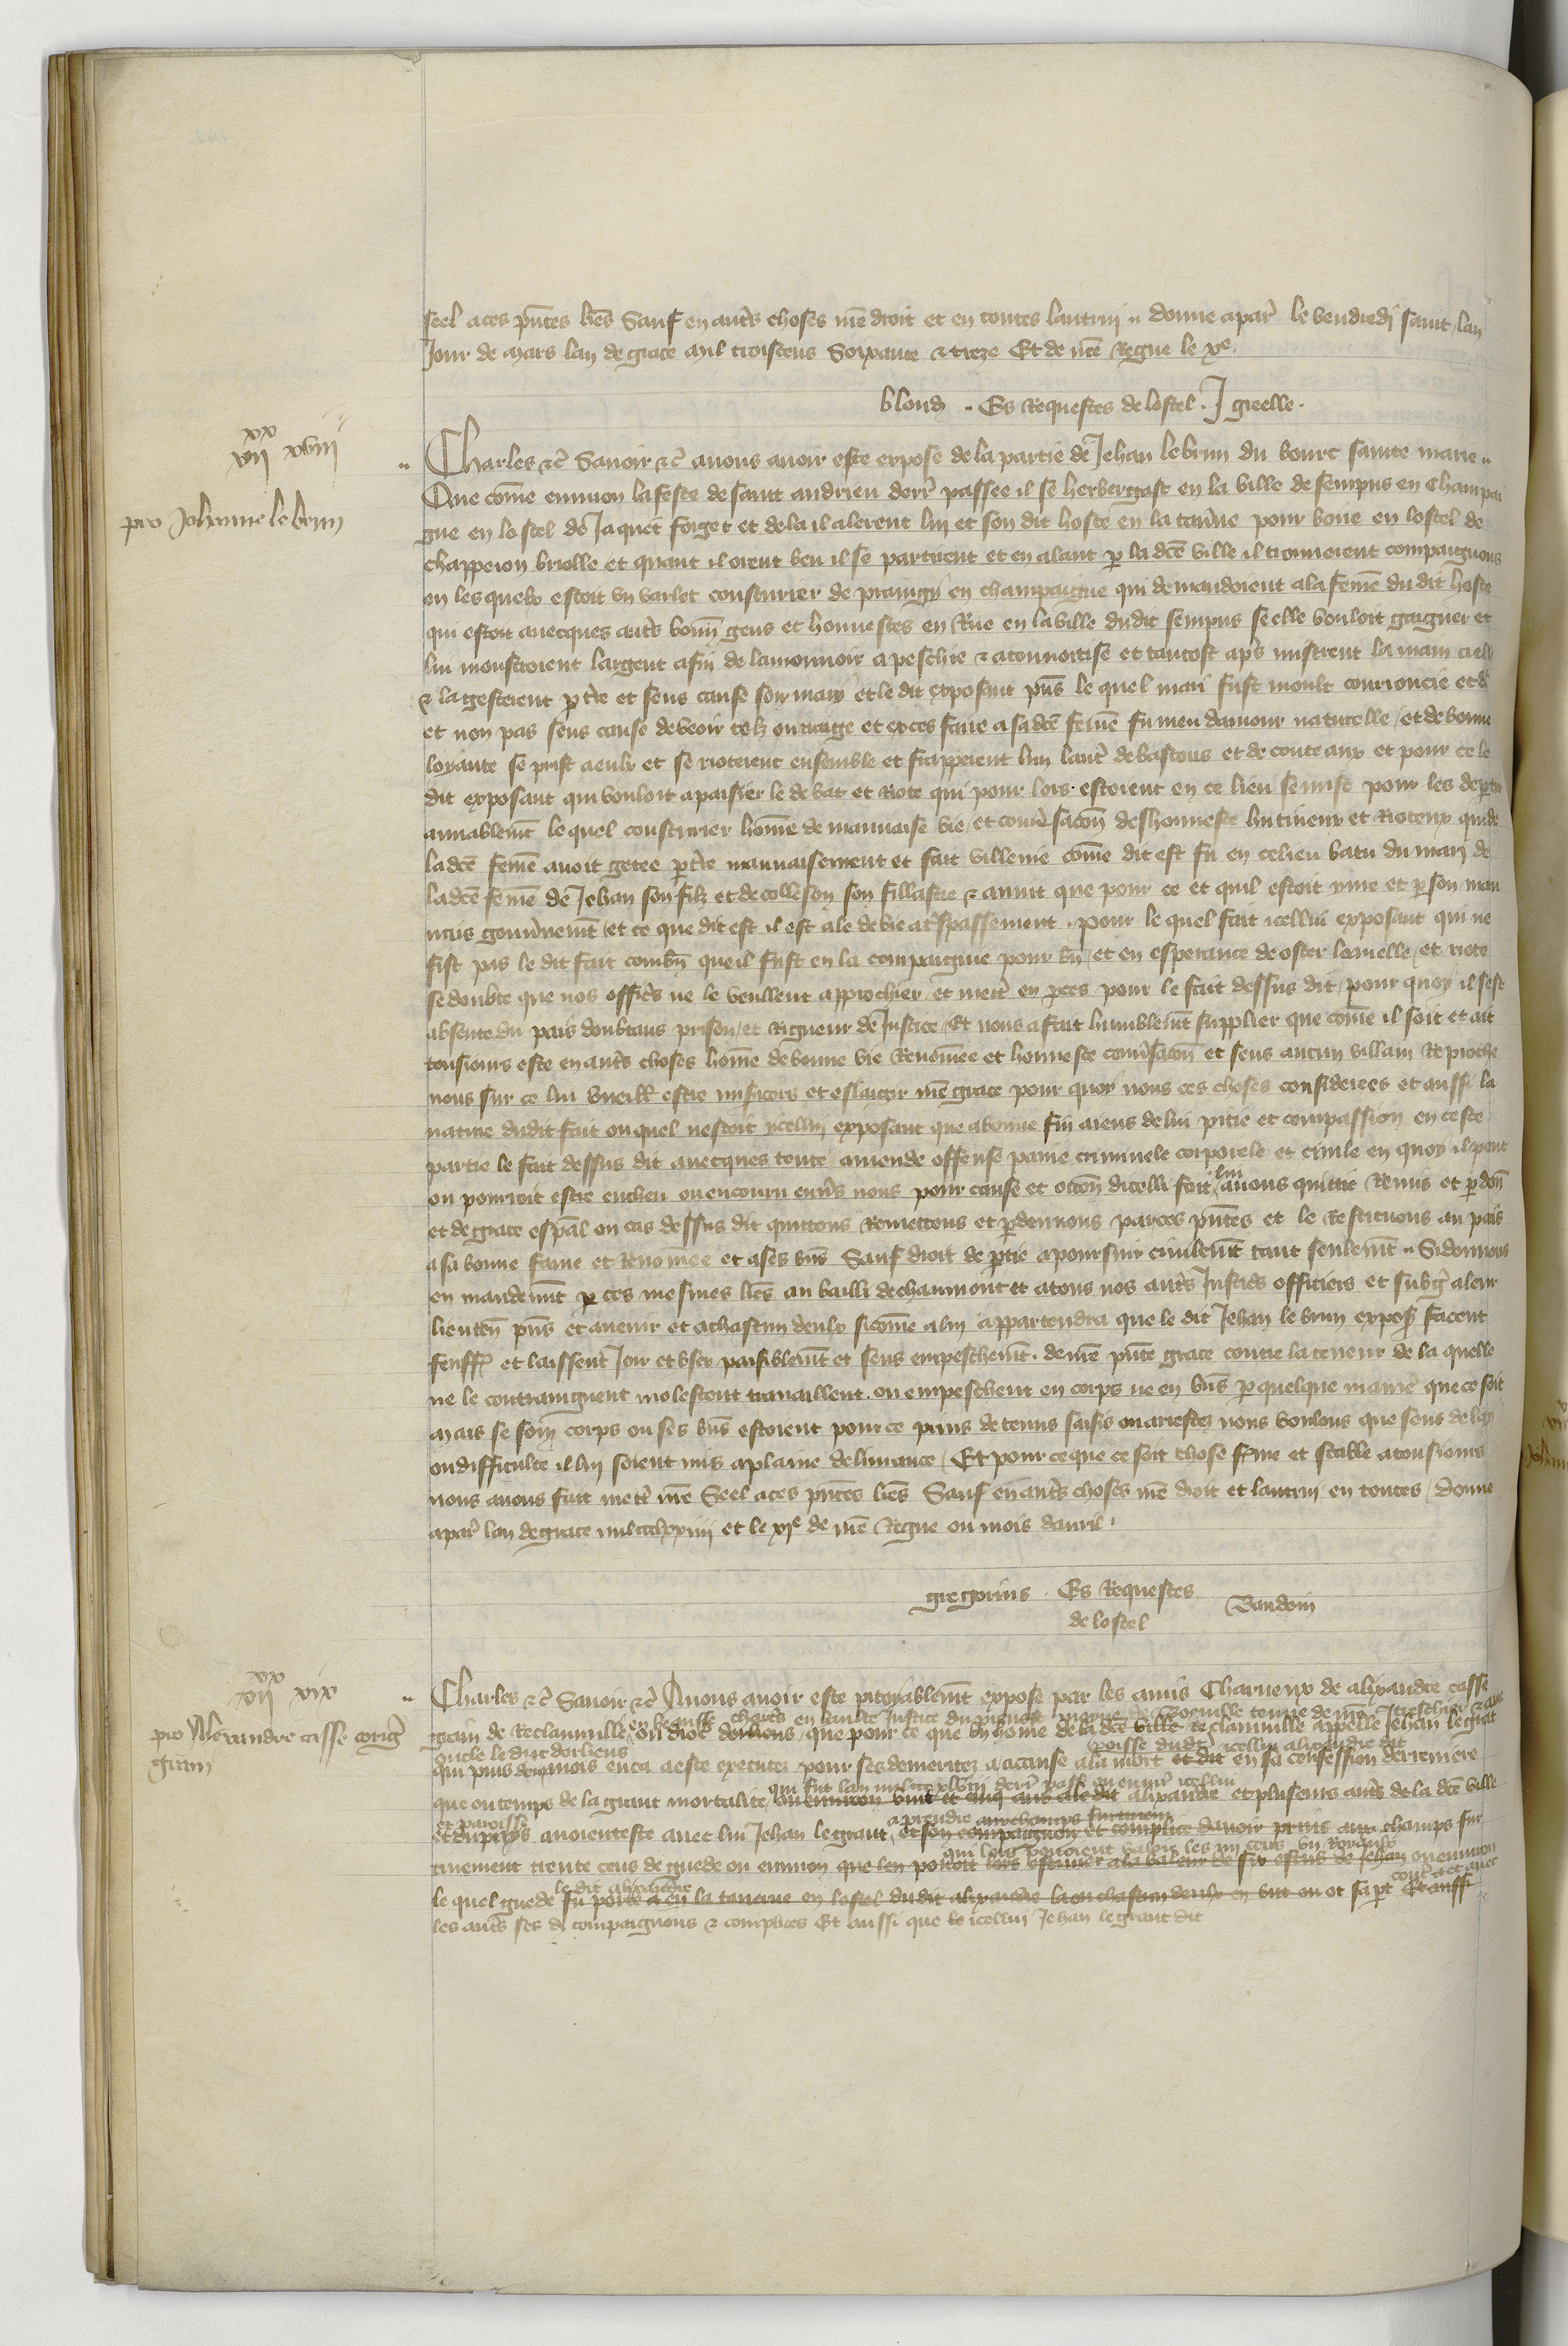 seel a ces pn̄tes lr̄es Sauf en aut̄s choses nr̄e droit et en toutes lautrui donne a par̄ le vendredi saint lan
Jour de Mars lan de grace mil troiscens Soixante & treze Et de nr̄e Regne le xe.
blond Es Requestes de lostel J greelle
xx
vii xviii
pro Johanne le brun
Charles &c̄ Savoir &c̄ a nous avoir este expose de la partie de Jehan le brun du bourc sainte marie
Que com̄e environ la feste de saint andrieu derr̄ passee il se herbergast en la ville de sempus en Champai
gne en lostel de Jaquet forget et de la il alerent lui et son dit hoste en la tav̄ne pour boire en lostel de
chapperon briolle et quant il orent beu il se partirent et en alant p la dc̄e ville il trouverent compaignons
en lesquelx estoit un varlet cousturier de en champaigne qui demandoient a la fem̄e du dit hoste
qui estoit avecques aut̄s bonn̄ gens et honnestes en Rue en la ville du dit sempus se elle vouloit gaigner et
lui monstroient largent afin de lamonnoir a peschie & et tantost ap̄s mistrent la main a elle
& la gesterent p t̄re et sens cause son mary et le dit exposant pn̄s le quel mari fust moult courroucie et
et non pas sens cause de veoir telz outrage et exces faire a sa dc̄e fem̄e fu meu damour naturelle et de bonne
loyaute se prist a eulx et se rioterent ensemble et frapperent lun laut̄ de bastons et de couteaux et pour ce le
dit exposant qui vouloit apaisier le debat et Riote qui pour lors estoient en ce lieu se mist pour les dep̄tir
amiablem̄t le quel cousturier hom̄e de mauvaise vie et conv̄sacōn deshonneste hutineux et Rioteux qui de
la dc̄e fem̄e avoit getee p t̄re mauvaisement et fait villenie com̄e dit est fu en ce lieu batu du mari de
la dc̄e fem̄e de Jehan son filz et de colleson son fillastre & avint que pour ce et quil estoit yvre et p son mau
vais gouv̄nem̄t et ce que dit est il est ale de vie a t̄spassement pour le quel fait icellui exposant qui ne
fist pas le dit fait combn̄ que il fust en la compaignie pour bn̄ et en esperance de oster la mellee et riote
se doubte que nos offic̄s ne le veullent approchier et mett̄ en pces pour le fait dessus dit pour quoy il sest
absente du pais doubtans prison et Rigueur de Justice Et nous a fait humblem̄t supplier que com̄e il soit et ait
tousjours este en aut̄s choses hom̄e de bonne vie Renom̄ee et honneste conv̄sacōn et sens aucun villain Reproche
nous sur ce lui vueill̄ estre misicors et eslargir nr̄e grace pour quoy nous ces choses considerees et aussi la
nature dudit fait ou quel nestoit ycellui exposant que a bonne fin aiens de lui pitie et compassion en ceste
partie le fait dessus dit avecques toute amende offense paine criminele corporele et civile en quoy il peut
ou pourroit estre encheu ou encouru env̄s nous pour cause et occōn dicelli fait lui avons quittie Remis et pdōn
et de grace esp̄al ou cas dessus dit quittons Remettons et pdonnons par ces pn̄tes et le Restituons au pais
a sa bonne fame et Renom̄ee et a ses bn̄s Sauf droit de ptie a poursuir civilem̄t tant seulem̄t Si donnons
en mandem̄t p ces mesmes lr̄es au bailli de chaumont et a tous nos aut̄s Justic̄s officiers et subḡ a leur
lieuten̄ pn̄s et avenir et a chascun deulx si com̄e a lui appartendra que le dit Jehan le brun expos̄ facent
seuff̄ et laissent Joir et user paisiblem̄t et sens empeschem̄t de nr̄e pn̄te grace contre la teneur de la quelle
ne le contraingnent molestent travaillent ou empeschent en corps ne en bn̄s p quelque manier̄ que ce soit
Mais se son corps ou ses bn̄s estoient pour ce prins detenus saisis ou arrestez nous voulons que sens delay
ou difficulte il lui soient mis a plaine delivrance Et pour ce que ce soit chose f̄me et stable a tousjours
nous avons fait mett̄ nr̄e Seel a ces pn̄tes lr̄es Sauf en aut̄s choses nr̄e droit et lautrui en toutes donne
a par̄ lan de grace mil ccclxxiiii et le xie de nr̄e Regne ou mois davril
gregorius Es Requestes
de lostel Baudoin
xx
vii xix
pro Alexandre casse
grain
Charles &c̄ Savoir &c̄ A nous avoir este pitoyablem̄t expose par les amis Charneux de alixandre casse
grain de Reclainville en beausse ou dioc̄ chart̄s en haulte Justice dorliens que pour ce que un hom̄e de la dc̄e ville de Reclainville appelle Jehan le grat
oncle le duc dorliens
qui puis deux mois enca a este executez pour ses demeritez a acause a la mort et dit en sa confession derreniere icellui alixandre dit
que ou temps de la grant mortalite qui fut lan mil cccxlviii derr̄ pass̄ ou environ icellui ou environ vint et cinq ans a le dit alixandre et plusieurs aut̄s de la dc̄e ville
et paroisse et du pays avoient este avec lui Jehan le grant a prendre aux champs furtivem̄ et son compaignon et complice davoir prins aux champs fur
tivement trente cens de guede ou environ qui lors povoient valoir les iii cens un Royaulx que len povoit lors estimer a la valeur de six escus de Jehan ou environ
le quel guede le dit alixandre fu porte a en la taverne en lostel du dit alixandre la ou chascun deulx en eut ou ot sa p̄t Et aussi
les aut̄s ses di compaignons & complices Et aussi que le icellui Jehan le grant dit